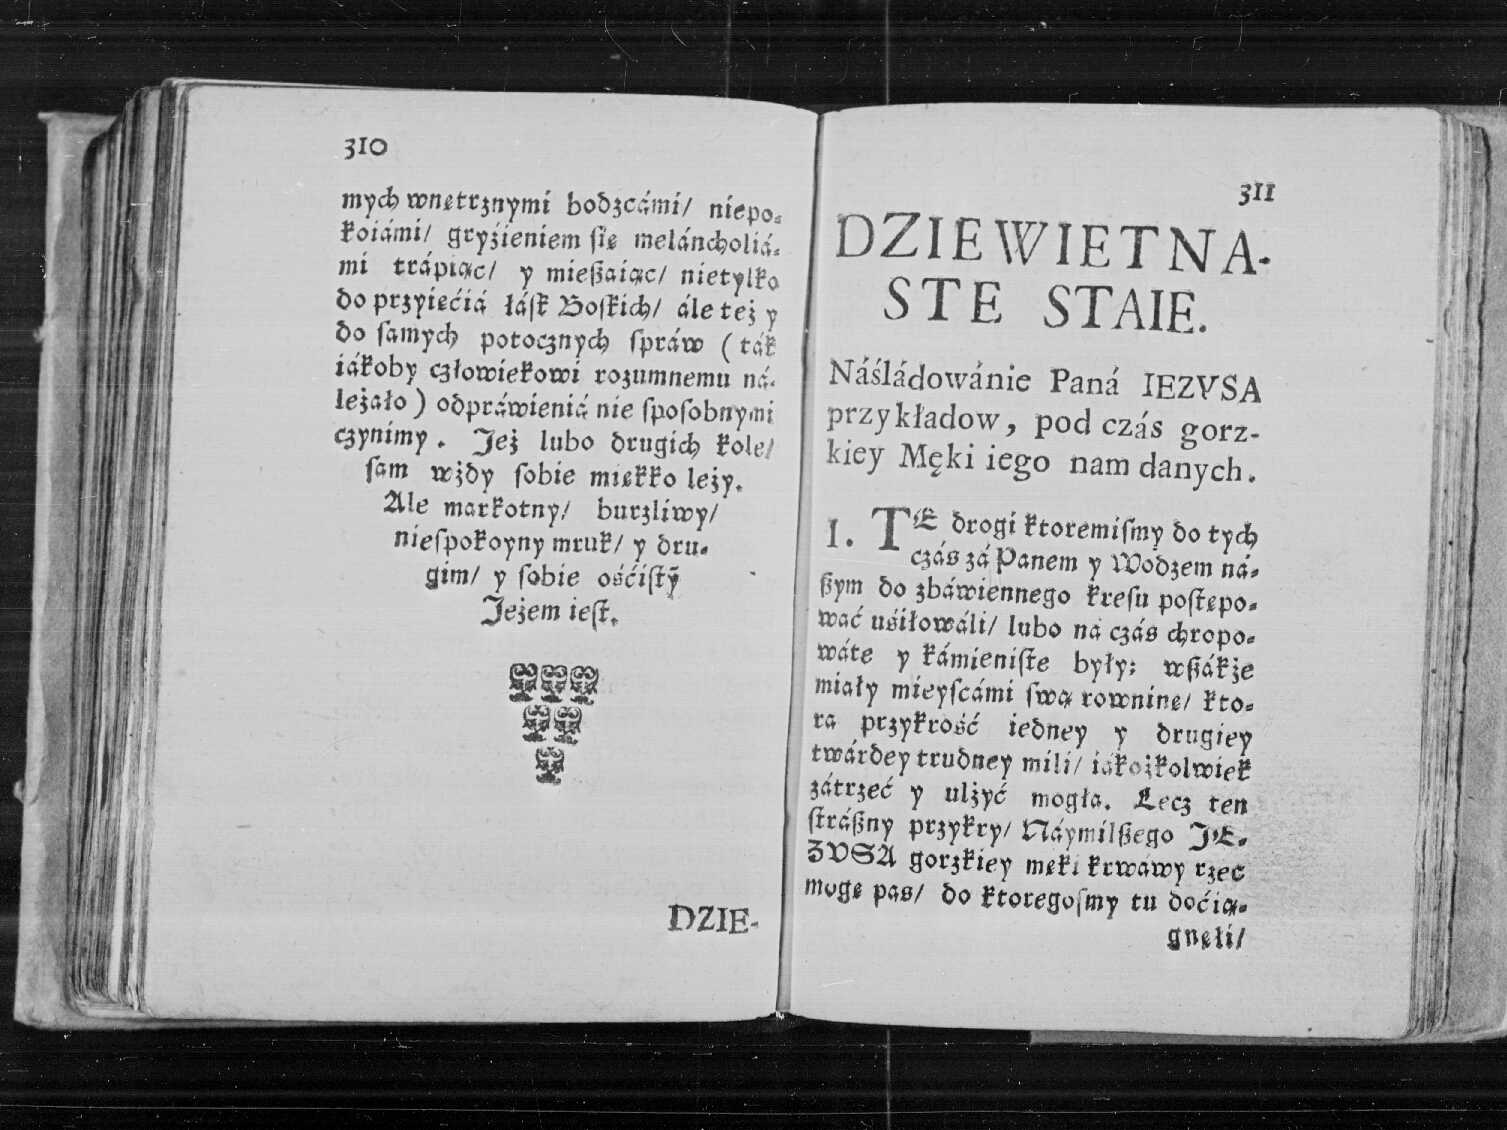 310
mych wnętrznymi bodzcámi/ niepo-
koiámi/ gryźieniem ſię meláncholiá-
mi trápiąc/ y mießaiąc/ nietylko
do przyięćiá łáſk Boſkich/ ále też y
do ſamych potocznych ſpráw (ták
iákoby człowiekowi rozumnemu ná-
leżało) odpráwieniá nie ſpoſobnymi
czynimy. Jeż lubo drugich kole/
ſam wżdy ſobie miękko leży.
Ale markotny/ burzliwy/
nieſpokoyny mruk/ y dru-
gim/ y ſobie ośćiſtý
Jeżem ieſt.
DZIE-
311
DZIEWIETNA-
STE STAIE.
Náśládowánie Paná IEZVSA
przykładow, pod czás gorz-
kiey Męki iego nam danych.
I. TE drogi ktoremiſmy do tych
czás zá Panem y Wodzem ná-
ßym do zbáwiennego kreſu poſtępo-
wáć uśiłowáli/ lubo ná czás chropo-
wáte y kámieniſte były; wßákże
miały mieyſcámi ſwą rowninę/ kto-
ra przykrość iedney y drugiey
twárdey trudney mili/ iákożkolwiek
zátrzeć y ulżyć mogła. Lecz ten
ſtráßny przykry/ Náymilßego JE-
ZVSA gorzkiey męki krwáwy rzec
mogę pas/ do ktoregoſmy tu doćią-
gnęłi/